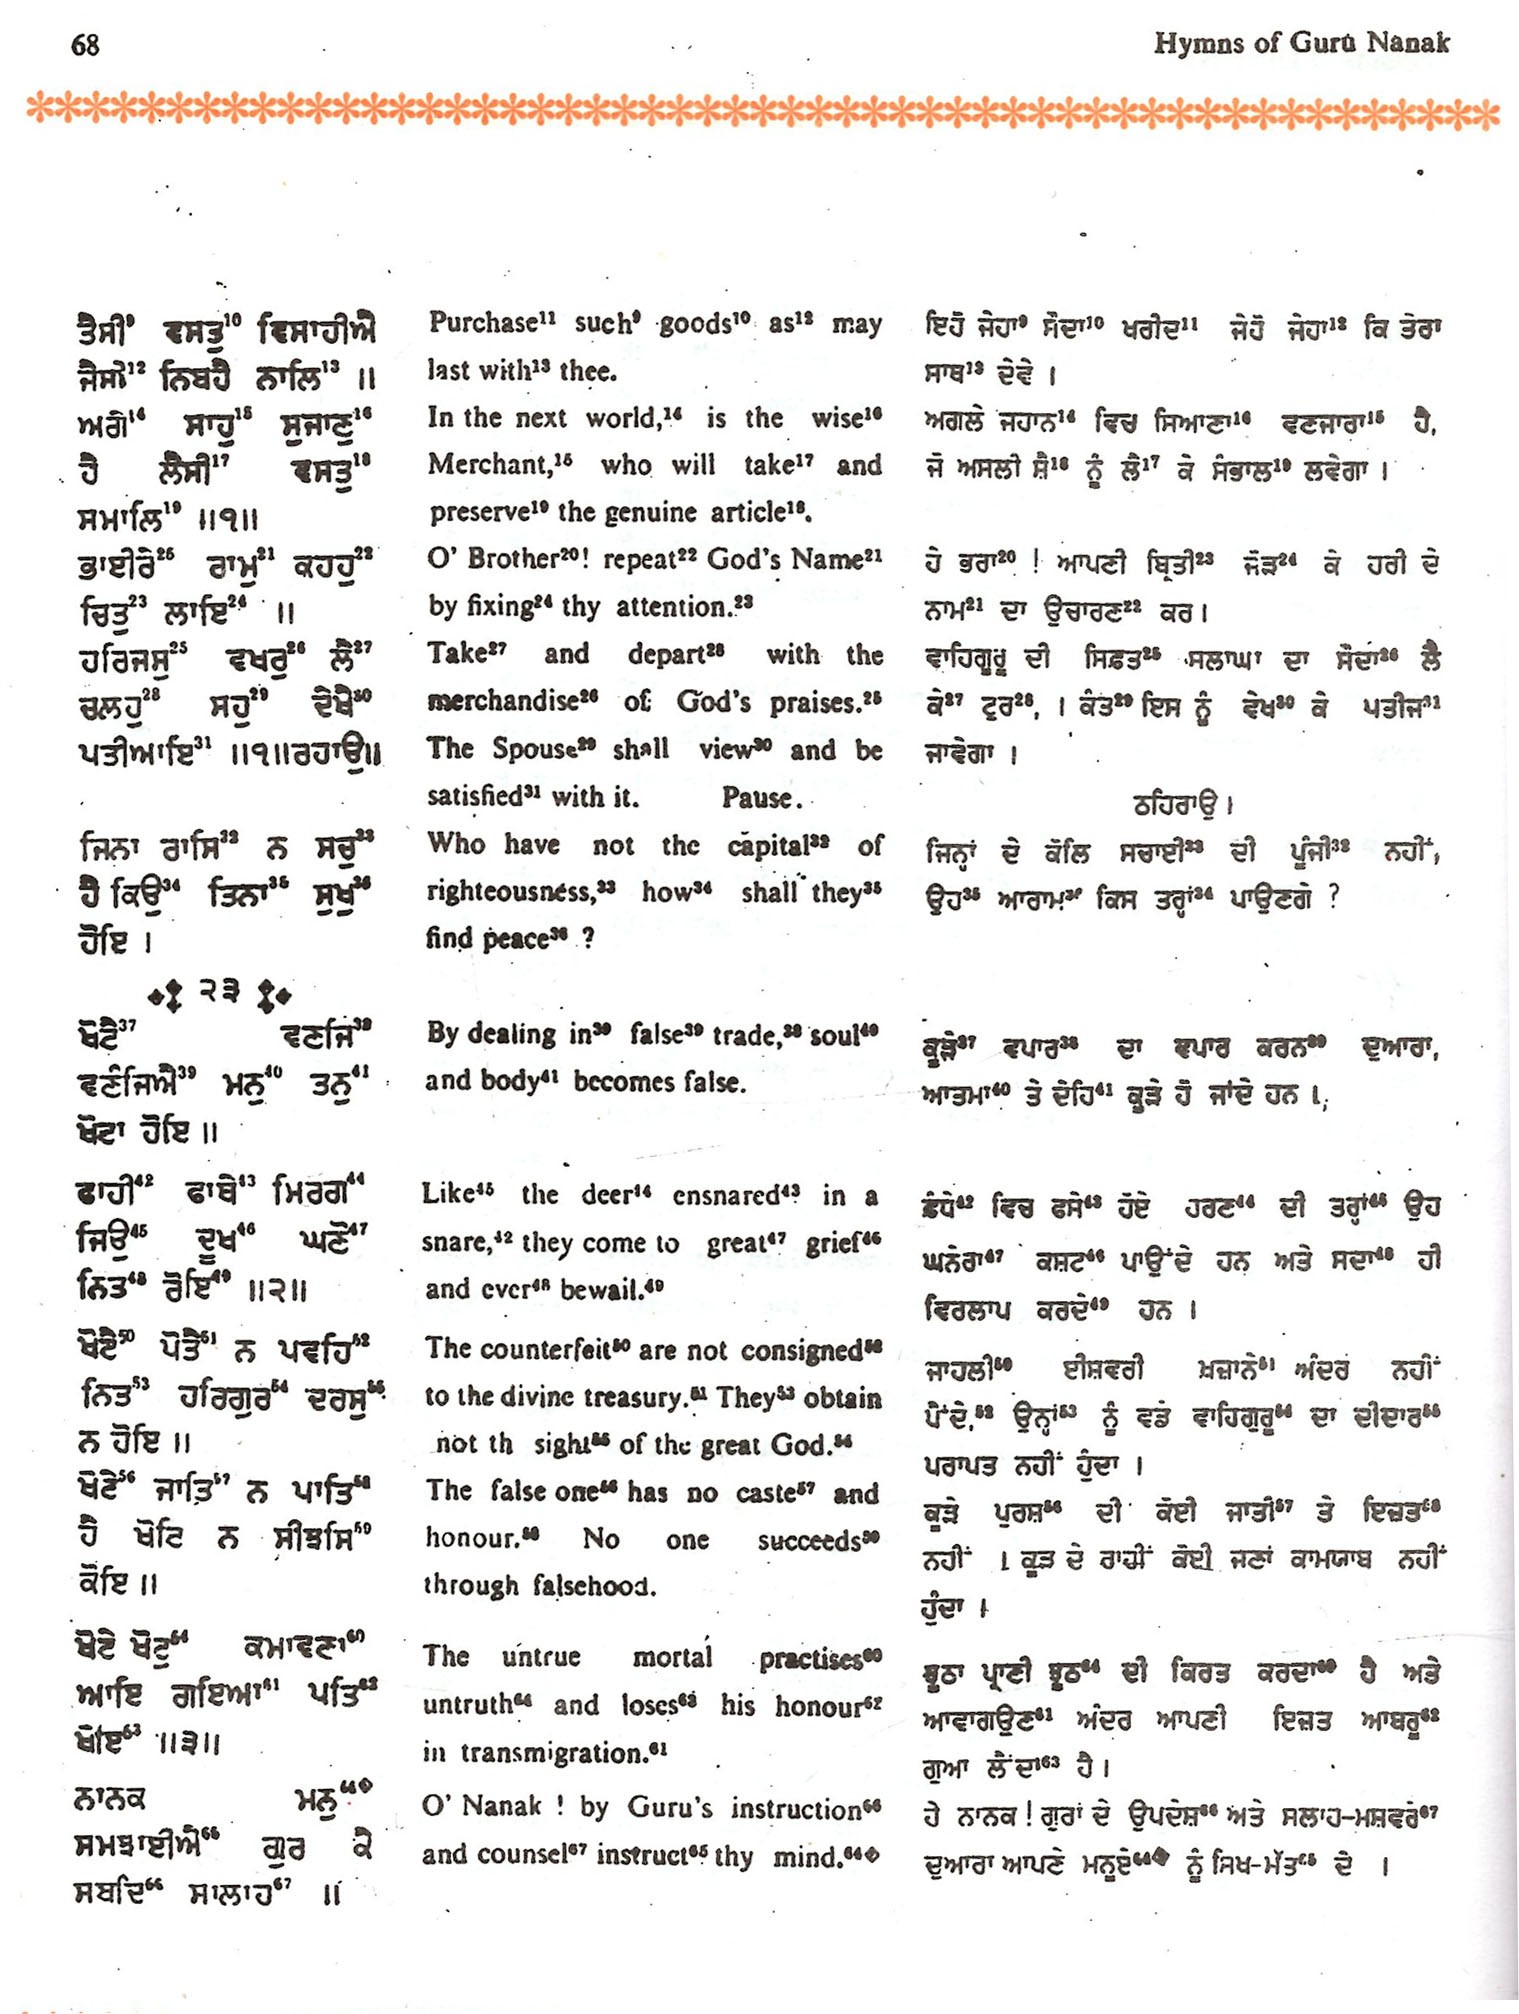 68
Hymns of Gurū Nānak
ਤੈਸੀ⁹ ਵਸਤੁ¹⁰ ਵਿਸਾਹੀਐ
ਜੈਸੀ¹² ਨਿਬਹੈ ਨਾਲਿ¹³ ॥
ਅਗੈ¹⁴ ਸਾਹੁ¹⁵ ਸੁਜਾਣੁ¹⁶
ਹੈ ਲੈਸੀ¹⁷ ਵਸਤੁ¹⁸
ਸਮਾਲਿ¹⁹ ॥੧॥
ਭਾਈਰੇ²⁵ ਰਾਮੁ²¹ ਕਹਹੁ²²
ਚਿਤੁ²³ ਲਾਇ²⁴ ॥
ਹਰਿਜਸੁ²⁵ ਵਖਰੁ²⁶ ਲੈ²⁷
ਚਲਹੁ²⁸ ਸਹੁ²⁹ ਦੇਖੈ³⁰
ਪਤੀਆਇ³¹ ॥੧॥ਰਹਾਉ॥
ਜਿਨਾ ਰਾਸਿ³² ਨ ਸਚੁ³³
ਹੈ ਕਿਉ³⁴ ਤਿਨਾ³⁵ ਸੁਖੁ³⁶
ਹੋਇ ।
੨੩
ਖੋਟੈ³⁷ ਵਣਜਿ³⁸
ਵਣੰਜਿਐ³⁹ ਮਨੁ⁴⁰ ਤਨੁ⁴¹
ਖੋਟਾ ਹੋਇ ॥
ਫਾਹੀ⁴² ਫਾਥੇ⁴³ ਮਿਰਗ⁴⁴
ਜਿਉ⁴⁵ ਦੂਖ⁴⁶ ਘਣੋ⁴⁷
ਨਿਤ⁴⁸ ਰੋਇ⁴⁹ ॥੨॥
ਖੋਟੈ⁵⁰ ਪੋਤੈ⁵¹ ਨ ਪਵਹਿ⁵²
ਨਿਤ⁵³ ਹਰਿਗੁਰ⁵⁴ ਦਰਸੁ⁵⁵
ਨ ਹੋਇ ॥
ਖੋਟੇ⁵⁶ ਜਾਤਿ⁵⁷ ਨ ਪਾਤਿ⁵⁸
ਹੈ ਖੋਟਿ ਨ ਸੀਝਸਿ⁵⁹
ਕੋਇ ॥
ਖੋਟੇ ਖੋਟੁ⁶⁴ ਕਮਾਵਣਾ⁶⁰
ਆਇ ਗਇਆ⁶¹ ਪਤਿ⁶²
ਖੋਇ⁶³ ॥੩॥
ਨਾਨਕ ਮਨੁ⁶⁴◆
ਸਮਝਾਈਐ⁶⁵ ਗੁਰ ਕੈ
ਸਬਦਿ⁶⁶ ਸਾਲਾਹ⁶⁷ ॥
Purchase¹¹ such⁹ goods¹⁰ as¹² may
last with¹³ thee.
In the next world,¹⁴ is the wise¹⁶
Merchant,¹⁵ who will take¹⁷ and
preserve¹⁹ the genuine article¹⁸.
O' Brother²⁰! repeat²² God's Name²¹
by fixing²⁴ thy attention.²³
Take²⁷ and depart²⁸ with the
merchandise²⁶ of God's praises.²⁵
The Spouse²⁹ shall view³⁰ and be
satisfied³¹ with it. Pause.
Who have not the capital³² of
righteousness,³³ how³⁴ shall they³⁵
find peace³⁶ ?
By dealing in³⁹ false³⁹ trade,³⁸ soul⁴⁰
and body⁴¹ becomes false.
Like⁴⁵ the deer⁴⁴ ensnared⁴³ in a
snare,⁴² they come to great⁴⁷ grief⁴⁶
and ever⁴⁸ bewail.⁴⁹
The counterfeit⁵⁰ are not consigned⁵²
to the divine treasury.⁵¹ They⁵³ obtain
not th sight⁵⁵ of the great God.⁵⁴
The false one⁵⁶ has no caste⁵⁷ and
honour.⁵⁸ No one succeeds⁵⁹
through falsehood.
The untrue mortal practises⁶⁰
untruth⁶⁴ and loses⁶³ his honour⁶²
in transmigration.⁶¹
O' Nanak ! by Guru's instruction⁶⁶
and counsel⁶⁷ instruct⁶⁵ thy mind.⁶⁴◆
ਇਹੋ ਜੇਹਾ⁹ ਸੌਦਾ¹⁰ ਖਰੀਦ¹¹ ਜੇਹੋ ਜੇਹਾ¹² ਕਿ ਤੇਰਾ
ਸਾਥ¹³ ਦੇਵੇ ।
ਅਗਲੇ ਜਹਾਨ¹⁴ ਵਿਚ ਸਿਆਣਾ¹⁶ ਵਣਜਾਰਾ¹⁵ ਹੈ,
ਜੋ ਅਸਲੀ ਸ਼ੈ¹⁸ ਨੂੰ ਲੈ¹⁷ ਕੇ ਸੰਭਾਲ¹⁹ ਲਵੇਗਾ ।
ਹੇ ਭਰਾ²⁰ ! ਆਪਣੀ ਬ੍ਰਿਤੀ²³ ਜੋੜ²⁴ ਕੇ ਹਰੀ ਦੇ
ਨਾਮ²¹ ਦਾ ਉਚਾਰਣ²² ਕਰ।
ਵਾਹਿਗੂਰੂ ਦੀ ਸਿਫ਼ਤ²⁵ ਸਲਾਘਾ ਦਾ ਸੌਦਾ²⁶ ਲੈ
ਕੇ²⁷ ਟੁਰ²⁸, । ਕੰਤ²⁹ ਇਸ ਨੂੰ ਵੇਖ³⁰ ਕੇ ਪਤੀਜ³¹
ਜਾਵੇਗਾ ।
ਠਹਿਰਾਉ ।
ਜਿਨ੍ਹਾਂ ਦੇ ਕੋਲਿ ਸਚਾਈ³³ ਦੀ ਪੂੰਜੀ³² ਨਹੀਂ,
ਉਹ³⁵ ਆਰਾਮ³⁶ ਕਿਸ ਤਰ੍ਹਾਂ³⁴ ਪਾਉਣਗੇ ?
ਕੂੜੇ³⁷ ਵਪਾਰ³⁸ ਦਾ ਵਪਾਰ ਕਰਨ³⁹ ਦੁਆਰਾ,
ਆਤਮਾ⁴⁰ ਤੇ ਦੇਹਿ⁴¹ ਕੂੜੇ ਹੋ ਜਾਂਦੇ ਹਨ ।
ਫ਼ੰਧੇ⁴² ਵਿਚ ਫਸੇ⁴³ ਹੋਏ ਹਰਣ⁴⁴ ਦੀ ਤਰ੍ਹਾਂ⁴⁵ ਉਹ
ਘਨੇਰਾ⁴⁷ ਕਸ਼ਟ⁴⁶ ਪਾਉਂਦੇ ਹਨ ਅਤੇ ਸਦਾ⁴⁸ ਹੀ
ਵਿਰਲਾਪ ਕਰਦੇ⁴⁹ ਹਨ ।
ਜਾਹਲੀ⁵⁰ ਈਸ਼ਵਰੀ ਖ਼ਜ਼ਾਨੇ⁵¹ ਅੰਦਰ ਨਹੀਂ
ਪੈਂਦੇ,⁵² ਉਨ੍ਹਾਂ⁵³ ਨੂੰ ਵਡੇ ਵਾਹਿਗੁਰੂ⁵⁴ ਦਾ ਦੀਦਾਰ⁵⁵
ਪਰਾਪਤ ਨਹੀਂ ਹੁੰਦਾ ।
ਕੂੜੇ ਪੁਰਸ਼⁵⁶ ਦੀ ਕੋਈ ਜਾਤੀ⁵⁷ ਤੇ ਇਜ਼ਤ⁵⁸
ਨਹੀਂ । ਕੂੜ ਦੇ ਰਾਹੀਂ ਕੋਈ ਜਣਾਂ ਕਾਮਯਾਬ ਨਹੀਂ
ਹੁੰਦਾ ।
ਝੂਠਾ ਪ੍ਰਾਣੀ ਝੂਠ⁶⁴ ਦੀ ਕਿਰਤ ਕਰਦਾ⁶⁰ ਹੈ ਅਤੇ
ਆਵਾਗਉਣ⁶¹ ਅੰਦਰ ਆਪਣੀ ਇਜ਼ਤ ਆਬਰੂ⁶²
ਗੁਆ ਲੈਂਦਾ⁶³ ਹੈ।
ਹੇ ਨਾਨਕ ! ਗੁਰਾਂ ਦੇ ਉਪਦੇਸ਼⁶⁶ ਅਤੇ ਸਲਾਹ-ਮਸ਼ਵਰੇ⁶⁷
ਦੁਆਰਾ ਆਪਣੇ ਮਨੂਏ⁶⁴◆ ਨੂੰ ਸਿਖ-ਮੱਤ⁶⁵ ਦੇ ।